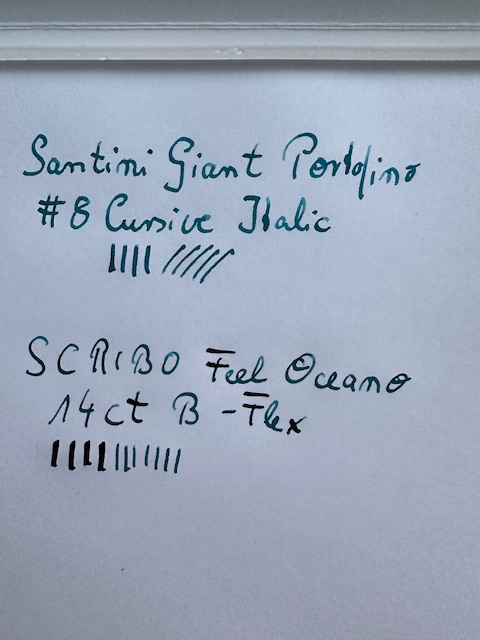 Santini Giant Portofino
#8 Cursive Italic
SCRIBO Feel Oceano
14ct B-Flex